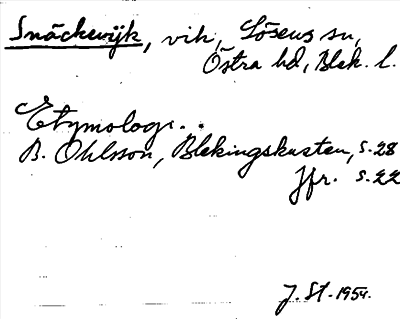 Snäckevijk, vik, Lösens sn,
Östra hd, Blek. l.
Etymologi..
B. Ohlsson, Blekingskusten, s. 28
Jfr. s. 22
J. St. 1954.